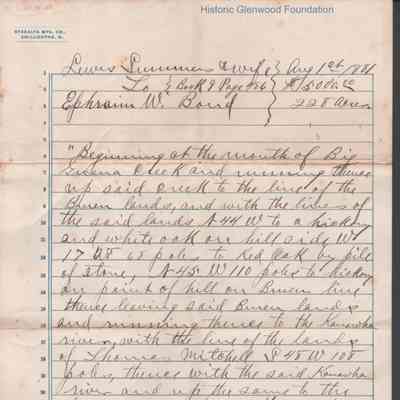 Historic Glenwood Foundation
Lewis Summers & wife } Aug 1st 1881
To { Book 9 Page 426 } $1500.00
Ephraim W. Bond } 228 Acres
"Beginning at the mouth of Big
Creek and running thence
up said Creek to the line of the
lands, and with the lines of
the said lands N 44 W to a hickory
and white oak on hill side W
poles to Red Oak by pile
of stone, N 45 W 110 poles to hickory
on point of hill on line
thence leaving said lands
and running thence to the Kanawha
river, with the line of the lands
of Thomas Mitchell S 45 W 108
poles, thence with the said Kanawha
river and up the same to the